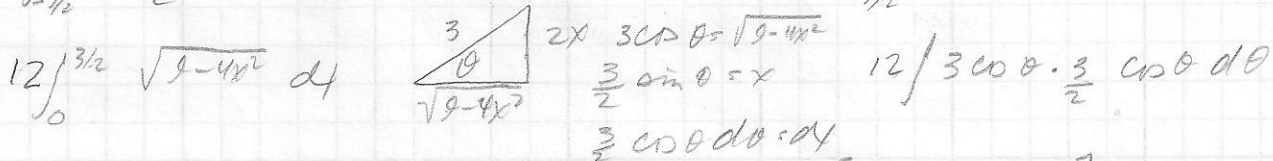 12∫₀^{3/2} √(9-4x²) dx
3
θ
2x
√(9-4x²)
3cos θ = √(9-4x²)
3/2 sin θ = x
3/2 cos θ dθ = dx
12∫ 3 cos θ · 3/2 cos θ dθ